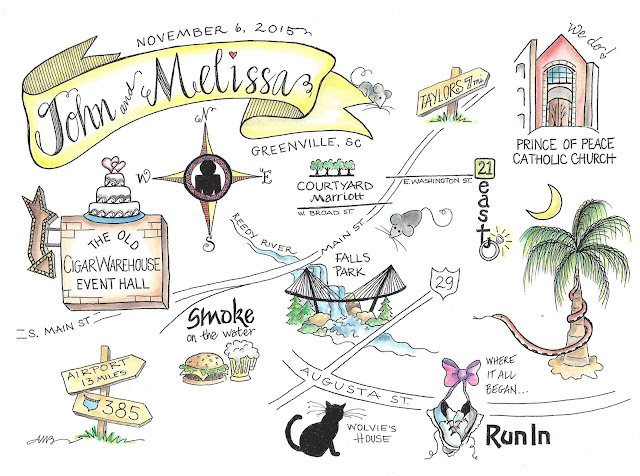 NOVEMBER 6, 2015
John and Melissa
GREENVILLE, SC
N
W
E
S
TAYLORS 7 mi.
We do!
PRINCE OF PEACE
CATHOLIC CHURCH
COURTYARD
Marriott
E. WASHINGTON ST.
W. BROAD ST.
21
east
THE OLD
CIGAR WAREHOUSE
EVENT HALL
REEDY RIVER
MAIN ST.
FALLS
PARK
29
S. MAIN ST.
Smoke
on the water
AIRPORT
13 MILES
385
AUGUSTA ST.
WOLVIE'S
HOUSE
WHERE
IT ALL
BEGAN...
RunIn